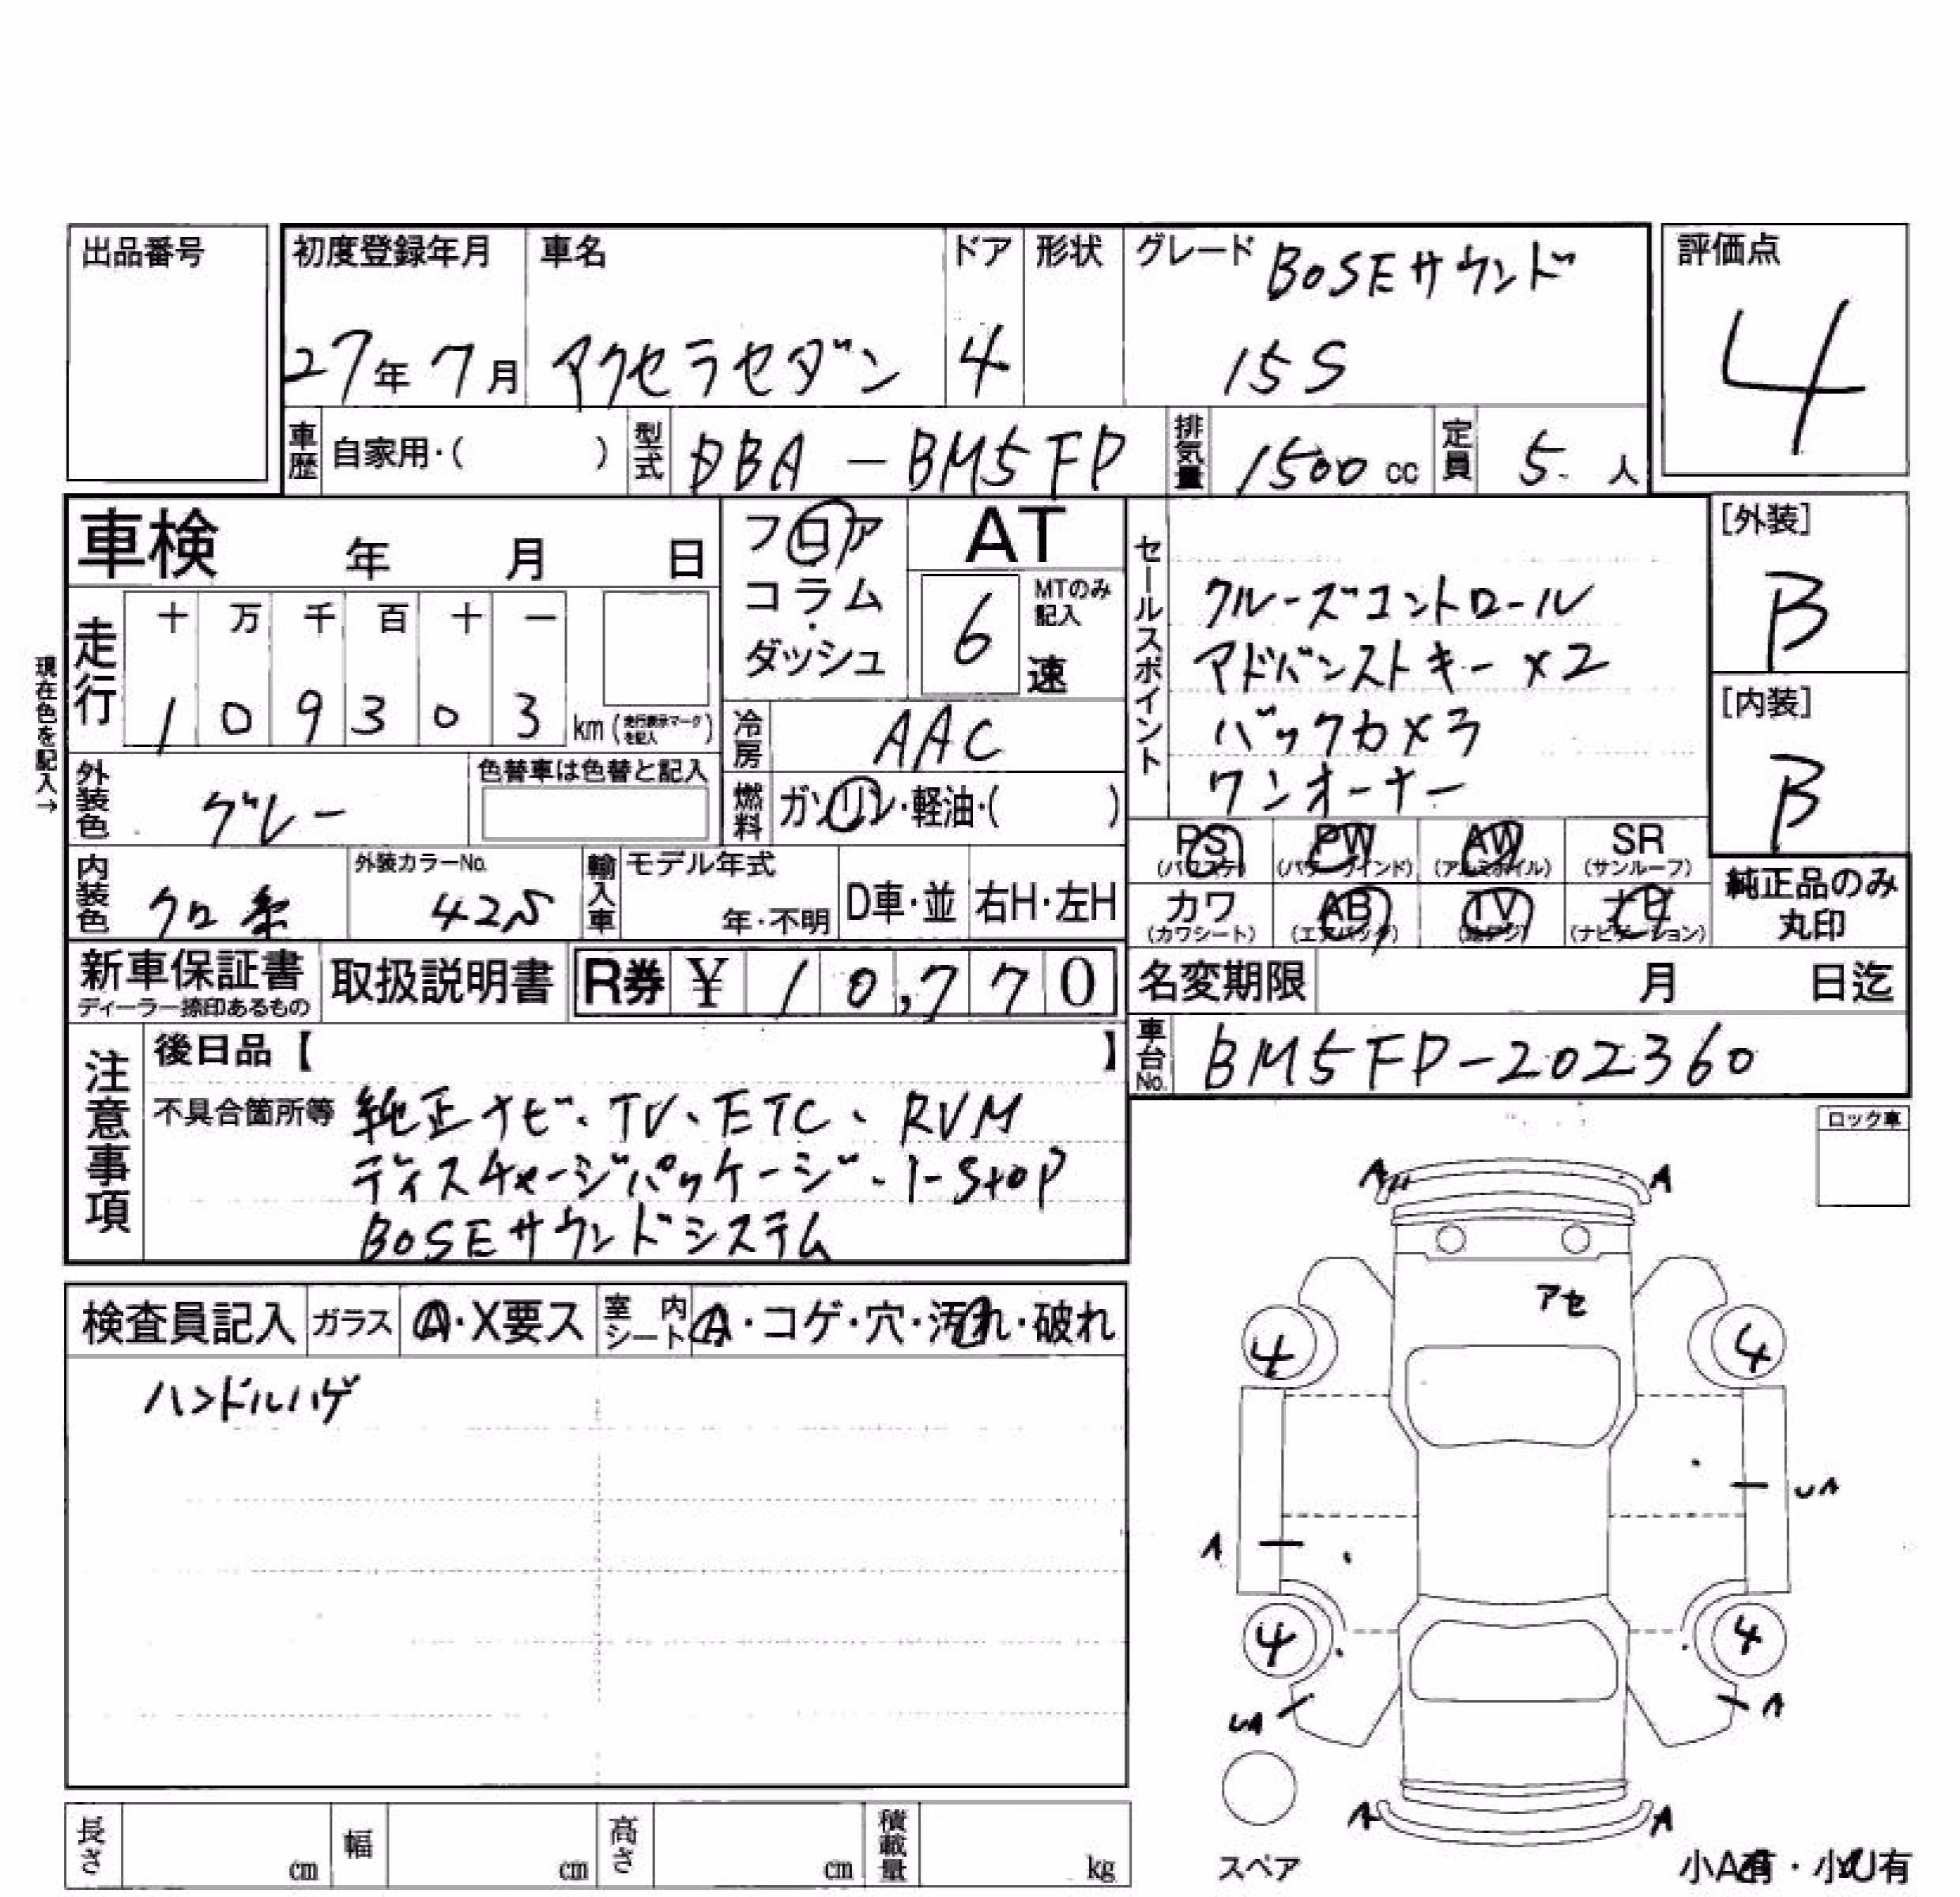 出品番号
初度登録年月 車名 ドア 形状 グレード BOSEサウンド 評価点
27年7月 アクセラセダン 4 15S 4
車歴 自家用・( ) 型式 DBA-BM5FP 排気量 1500cc 定員 5人
車検 年 月 日
フロア
コラム
・
ダッシュ
AT
6速
MTのみ記入
セールスポイント
クルーズコントロール
アドバンストキー×2
バックカメラ
ワンオーナー
[外装]
B
[内装]
B
現在色を記入→
走行 十 万 千 百 十 一
1 0 9 3 0 3 km (走行表示マークを記入)
冷房 AAC
燃料 ガソリン・軽油・( )
外装色 グレー 色替車は色替と記入
内装色 クロ系 外装カラーNo. 42S 輸入車 モデル年式 年・不明 D車・並 右H・左H
PS PW AW SR
(パワステ) (パワーウインド) (アルミホイル) (サンルーフ)
カワ AB TV ナビ
(カワシート) (エアバッグ) (地デジ) (ナビゲーション)
純正品のみ
丸印
新車保証書 取扱説明書 R券 ¥ 10,770
ディーラー捺印あるもの
名変期限 月 日迄
車台No. BM5FP-202360
注意事項
後日品【 】
不具合箇所等 純正ナビ、TV、ETC、RVM
ディスチャージパッケージ、i-stop
BOSEサウンドシステム
ロック車
検査員記入 ガラス A・X要ス 室内シート A・コゲ・穴・汚れ・破れ
ハンドルハゲ
A A
アセ
4 4
UA
A
4 4
UA A
A A
スペア
小A有・小U有
長さ cm 幅 cm 高さ cm 積載量 kg